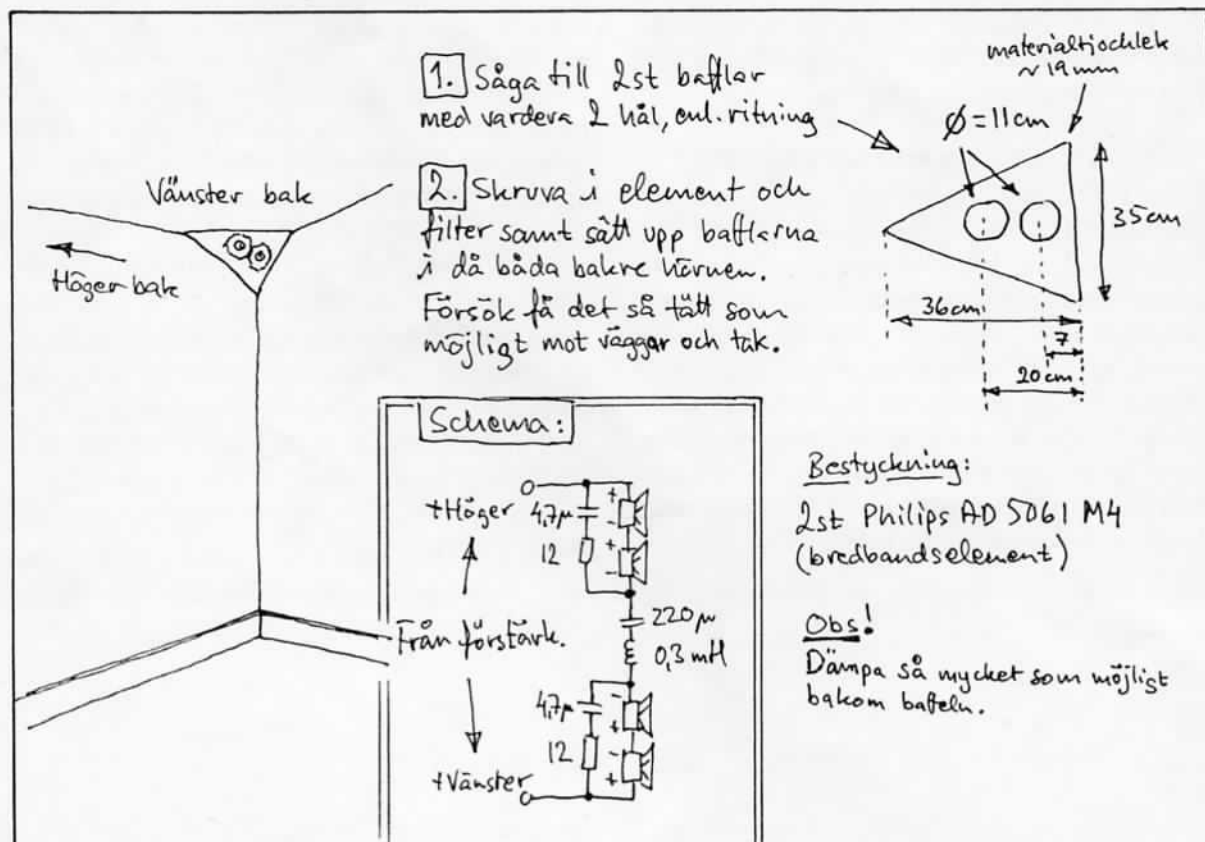 1. Såga till 2st bafflar
med vardera 2 hål, enl. ritning
2. Skruva i element och
filter samt sätt upp bafflarna
i då båda bakre hörnen.
Försök få det så tätt som
möjligt mot väggar och tak.
materialtjocklek
~19mm
Ø=11cm
35cm
36cm
7
20cm
Vänster bak
Höger bak
Schema:
+Höger
4,7µ
12
220µ
0,3 mH
Från förstärk.
4,7µ
12
+Vänster
+
-
+
-
-
+
-
+
Bestyckning:
2st Philips AD 5061 M4
(bredbandselement)
Obs!
Dämpa så mycket som möjligt
bakom baffeln.